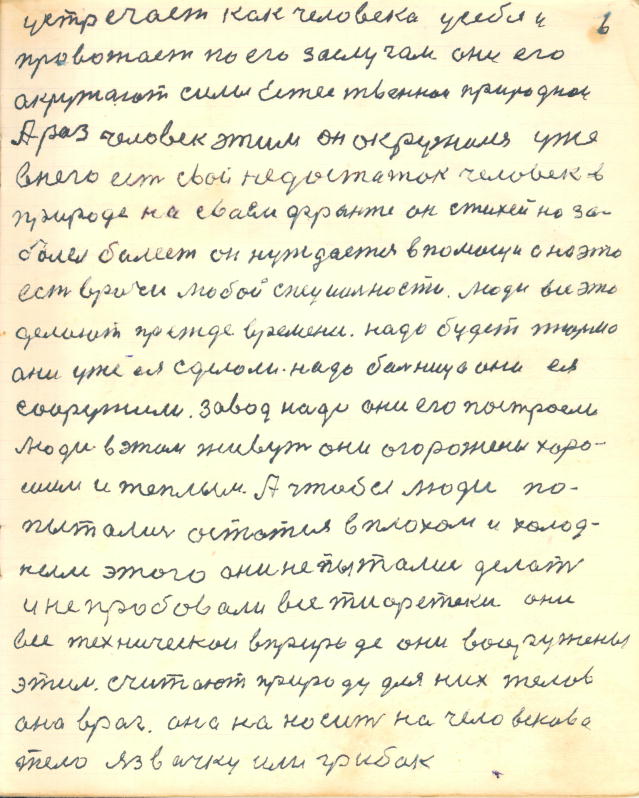 6
устречает как человека усебя и
провожает по его заслугам они его
окружают силы естественной природной
А раз человек этим он окружился уже
внего ест свой недостаток человек в
природе на сваем фронте он стихейно за-
болел балеет он нуждается впомощи а на это
ест врачи любой специалности. люди все это
делают прежде времени. надо будет тюрмо
они уже ея сделоли. надо балница они ея
сооружили. завод надо они его построели
люди в этом живут они огорожены харо-
шим и теплым. А чтобы люди по-
пыталис остатся вплохом и холод-
ным этого они непыталис делат
и не пробовали все тиоретеки они
все техническои вприроде они вооружены
этим. считают природу для них телов
она враг. она на носит на человекова
тело язвачку или грибок